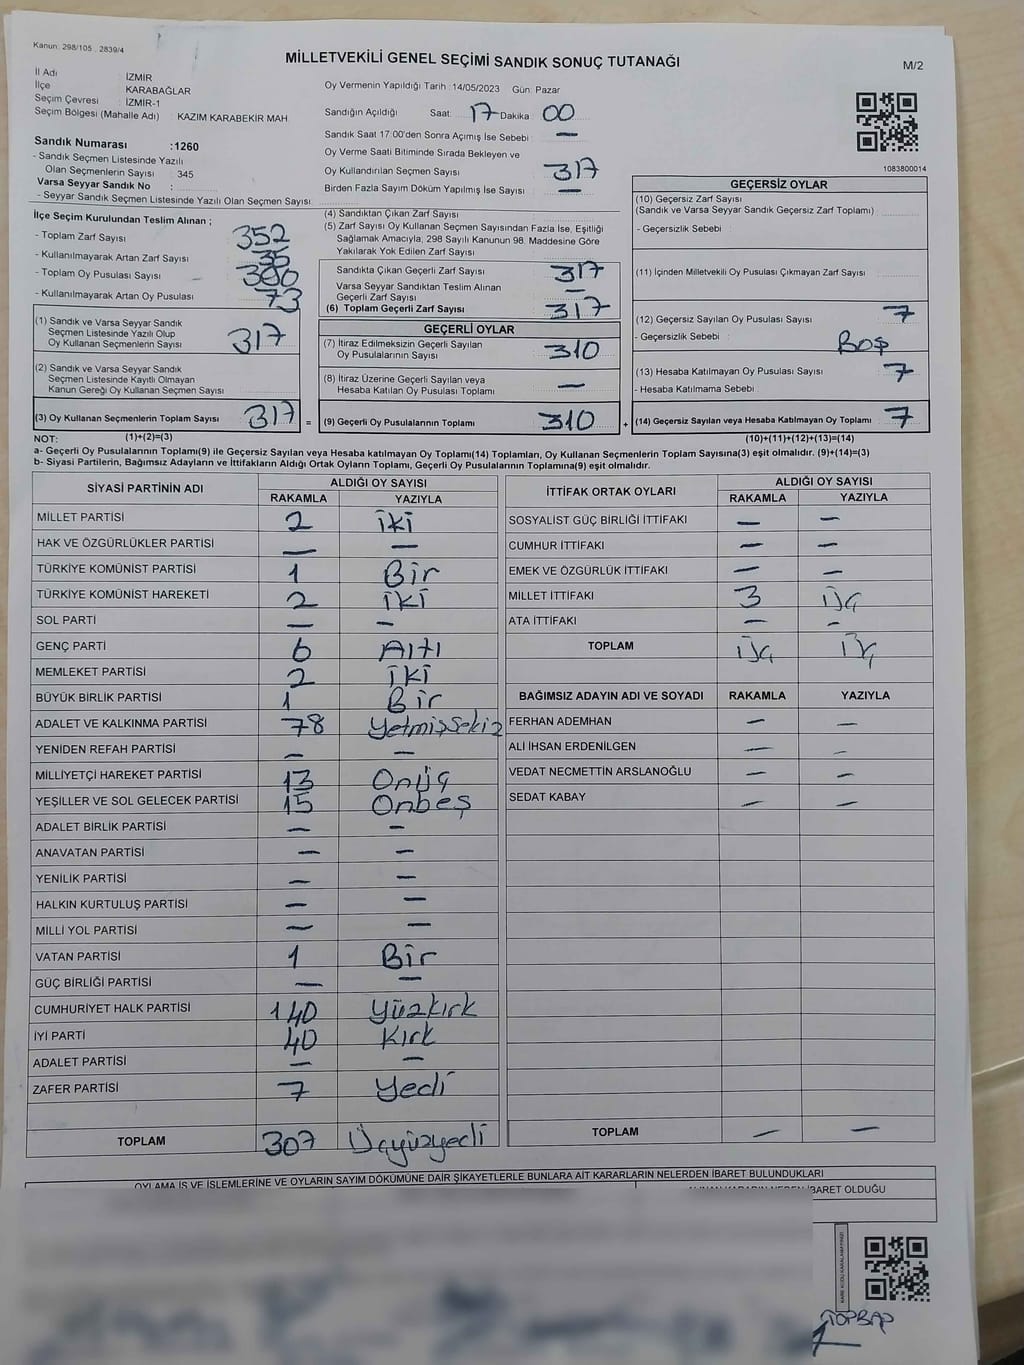 Kanun: 298/105 , 2839/4
MİLLETVEKİLİ GENEL SEÇİMİ SANDIK SONUÇ TUTANAĞI
M/2
İl Adı : İZMİR
İlçe : KARABAĞLAR
Seçim Çevresi : İZMİR-1
Seçim Bölgesi (Mahalle Adı) : KAZIM KARABEKİR MAH.
Sandık Numarası :1260
- Sandık Seçmen Listesinde Yazılı
Olan Seçmenlerin Sayısı : 345
Varsa Seyyar Sandık No :
- Seyyar Sandık Seçmen Listesinde Yazılı Olan Seçmen Sayısı:
Oy Vermenin Yapıldığı Tarih : 14/05/2023 Gün: Pazar
Sandığın Açıldığı Saat: 17 Dakika: 00
Sandık Saat 17:00'den Sonra Açımış İse Sebebi : —
Oy Verme Saati Bitiminde Sırada Bekleyen ve
Oy Kullandırılan Seçmen Sayısı : 317
Birden Fazla Sayım Döküm Yapılmış İse Sayısı : —
1083800014
İlçe Seçim Kurulundan Teslim Alınan ;
- Toplam Zarf Sayısı : 352
- Kullanılmayarak Artan Zarf Sayısı : 35
- Toplam Oy Pusulası Sayısı : 380
- Kullanılmayarak Artan Oy Pusulası : 73
(1) Sandık ve Varsa Seyyar Sandık
Seçmen Listesinde Yazılı Olup
Oy Kullanan Seçmenlerin Sayısı : 317
(2) Sandık ve Varsa Seyyar Sandık
Seçmen Listesinde Kayıtlı Olmayan
Kanun Gereği Oy Kullanan Seçmen Sayısı :
(3) Oy Kullanan Seçmenlerin Toplam Sayısı : 317
(1)+(2)=(3)
(4) Sandıktan Çıkan Zarf Sayısı :
(5) Zarf Sayısı Oy Kullanan Seçmen Sayısından Fazla İse, Eşitliği
Sağlamak Amacıyla, 298 Sayılı Kanunun 98. Maddesine Göre
Yakılarak Yok Edilen Zarf Sayısı :
Sandıkta Çıkan Geçerli Zarf Sayısı : 317
Varsa Seyyar Sandıktan Teslim Alınan
Geçerli Zarf Sayısı : —
(6) Toplam Geçerli Zarf Sayısı : 317
GEÇERLİ OYLAR
(7) İtiraz Edilmeksizin Geçerli Sayılan
Oy Pusulalarının Sayısı : 310
(8) İtiraz Üzerine Geçerli Sayılan veya
Hesaba Katılan Oy Pusulası Toplamı : —
= (9) Geçerli Oy Pusulalarının Toplamı : 310 +
GEÇERSİZ OYLAR
(10) Geçersiz Zarf Sayısı
(Sandık ve Varsa Seyyar Sandık Geçersiz Zarf Toplamı) :
- Geçersizlik Sebebi :
(11) İçinden Milletvekili Oy Pusulası Çıkmayan Zarf Sayısı :
(12) Geçersiz Sayılan Oy Pusulası Sayısı : 7
- Geçersizlik Sebebi : Boş
(13) Hesaba Katılmayan Oy Pusulası Sayısı : 7
- Hesaba Katılmama Sebebi :
(14) Geçersiz Sayılan veya Hesaba Katılmayan Oy Toplamı : 7
(10)+(11)+(12)+(13)=(14)
NOT:
a- Geçerli Oy Pusulalarının Toplamı(9) ile Geçersiz Sayılan veya Hesaba katılmayan Oy Toplamı(14) Toplamları, Oy Kullanan Seçmenlerin Toplam Sayısına(3) eşit olmalıdır. (9)+(14)=(3)
b- Siyasi Partilerin, Bağımsız Adayların ve İttifakların Aldığı Ortak Oyların Toplamı, Geçerli Oy Pusulalarının Toplamına(9) eşit olmalıdır.
SİYASİ PARTİNİN ADI ALDIĞI OY SAYISI
RAKAMLA YAZIYLA
MİLLET PARTİSİ 2 iki
HAK VE ÖZGÜRLÜKLER PARTİSİ — —
TÜRKİYE KOMÜNİST PARTİSİ 1 Bir
TÜRKİYE KOMÜNİST HAREKETİ 2 iki
SOL PARTİ — —
GENÇ PARTİ 6 Altı
MEMLEKET PARTİSİ 2 iki
BÜYÜK BİRLİK PARTİSİ 1 Bir
ADALET VE KALKINMA PARTİSİ 78 Yetmişsekiz
YENİDEN REFAH PARTİSİ — —
MİLLİYETÇİ HAREKET PARTİSİ 13 Onüç
YEŞİLLER VE SOL GELECEK PARTİSİ 15 Onbeş
ADALET BİRLİK PARTİSİ — —
ANAVATAN PARTİSİ — —
YENİLİK PARTİSİ — —
HALKIN KURTULUŞ PARTİSİ — —
MİLLİ YOL PARTİSİ — —
VATAN PARTİSİ 1 Bir
GÜÇ BİRLİĞİ PARTİSİ — —
CUMHURİYET HALK PARTİSİ 140 Yüzkırk
İYİ PARTİ 40 Kırk
ADALET PARTİSİ — —
ZAFER PARTİSİ 7 Yedi
TOPLAM 307 Üçyüzyedi
İTTİFAK ORTAK OYLARI ALDIĞI OY SAYISI
RAKAMLA YAZIYLA
SOSYALİST GÜÇ BİRLİĞİ İTTİFAKI — —
CUMHUR İTTİFAKI — —
EMEK VE ÖZGÜRLÜK İTTİFAKI — —
MİLLET İTTİFAKI 3 Üç
ATA İTTİFAKI — —
TOPLAM Üç Üç
BAĞIMSIZ ADAYIN ADI VE SOYADI RAKAMLA YAZIYLA
FERHAN ADEMHAN — —
ALİ İHSAN ERDENİLGEN — —
VEDAT NECMETTİN ARSLANOĞLU — —
SEDAT KABAY — —
TOPLAM — —
OYLAMA İŞ VE İŞLEMLERİNE VE OYLARIN SAYIM DÖKÜMÜNE DAİR ŞİKAYETLERLE BUNLARA AİT KARARLARIN NELERDEN İBARET BULUNDUKLARI
İBARET OLDUĞU
TOPBAP